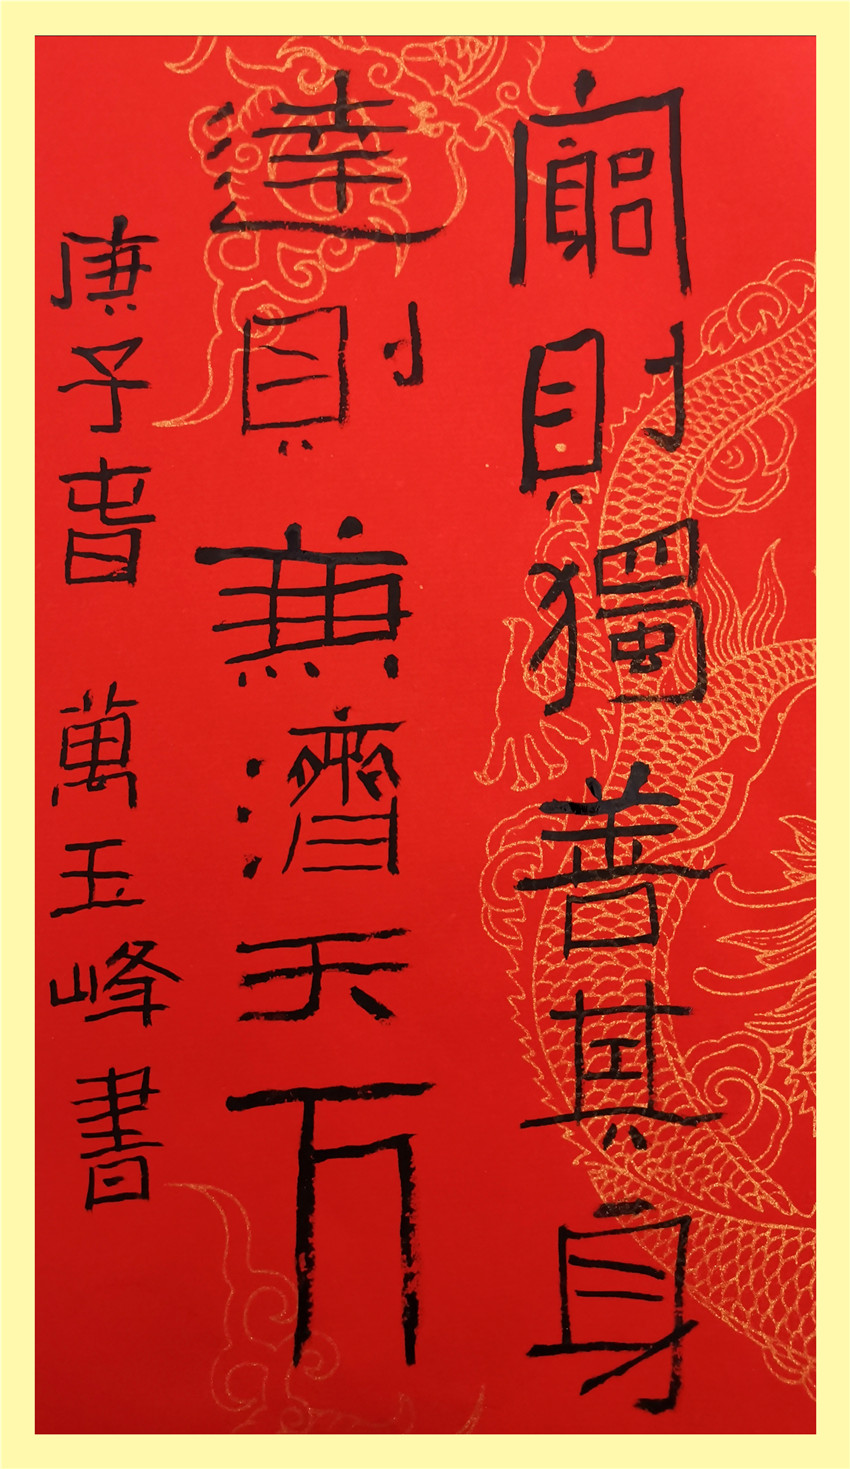 窮則獨善其身
達則兼濟天下
庚子旾 萬玉峰書